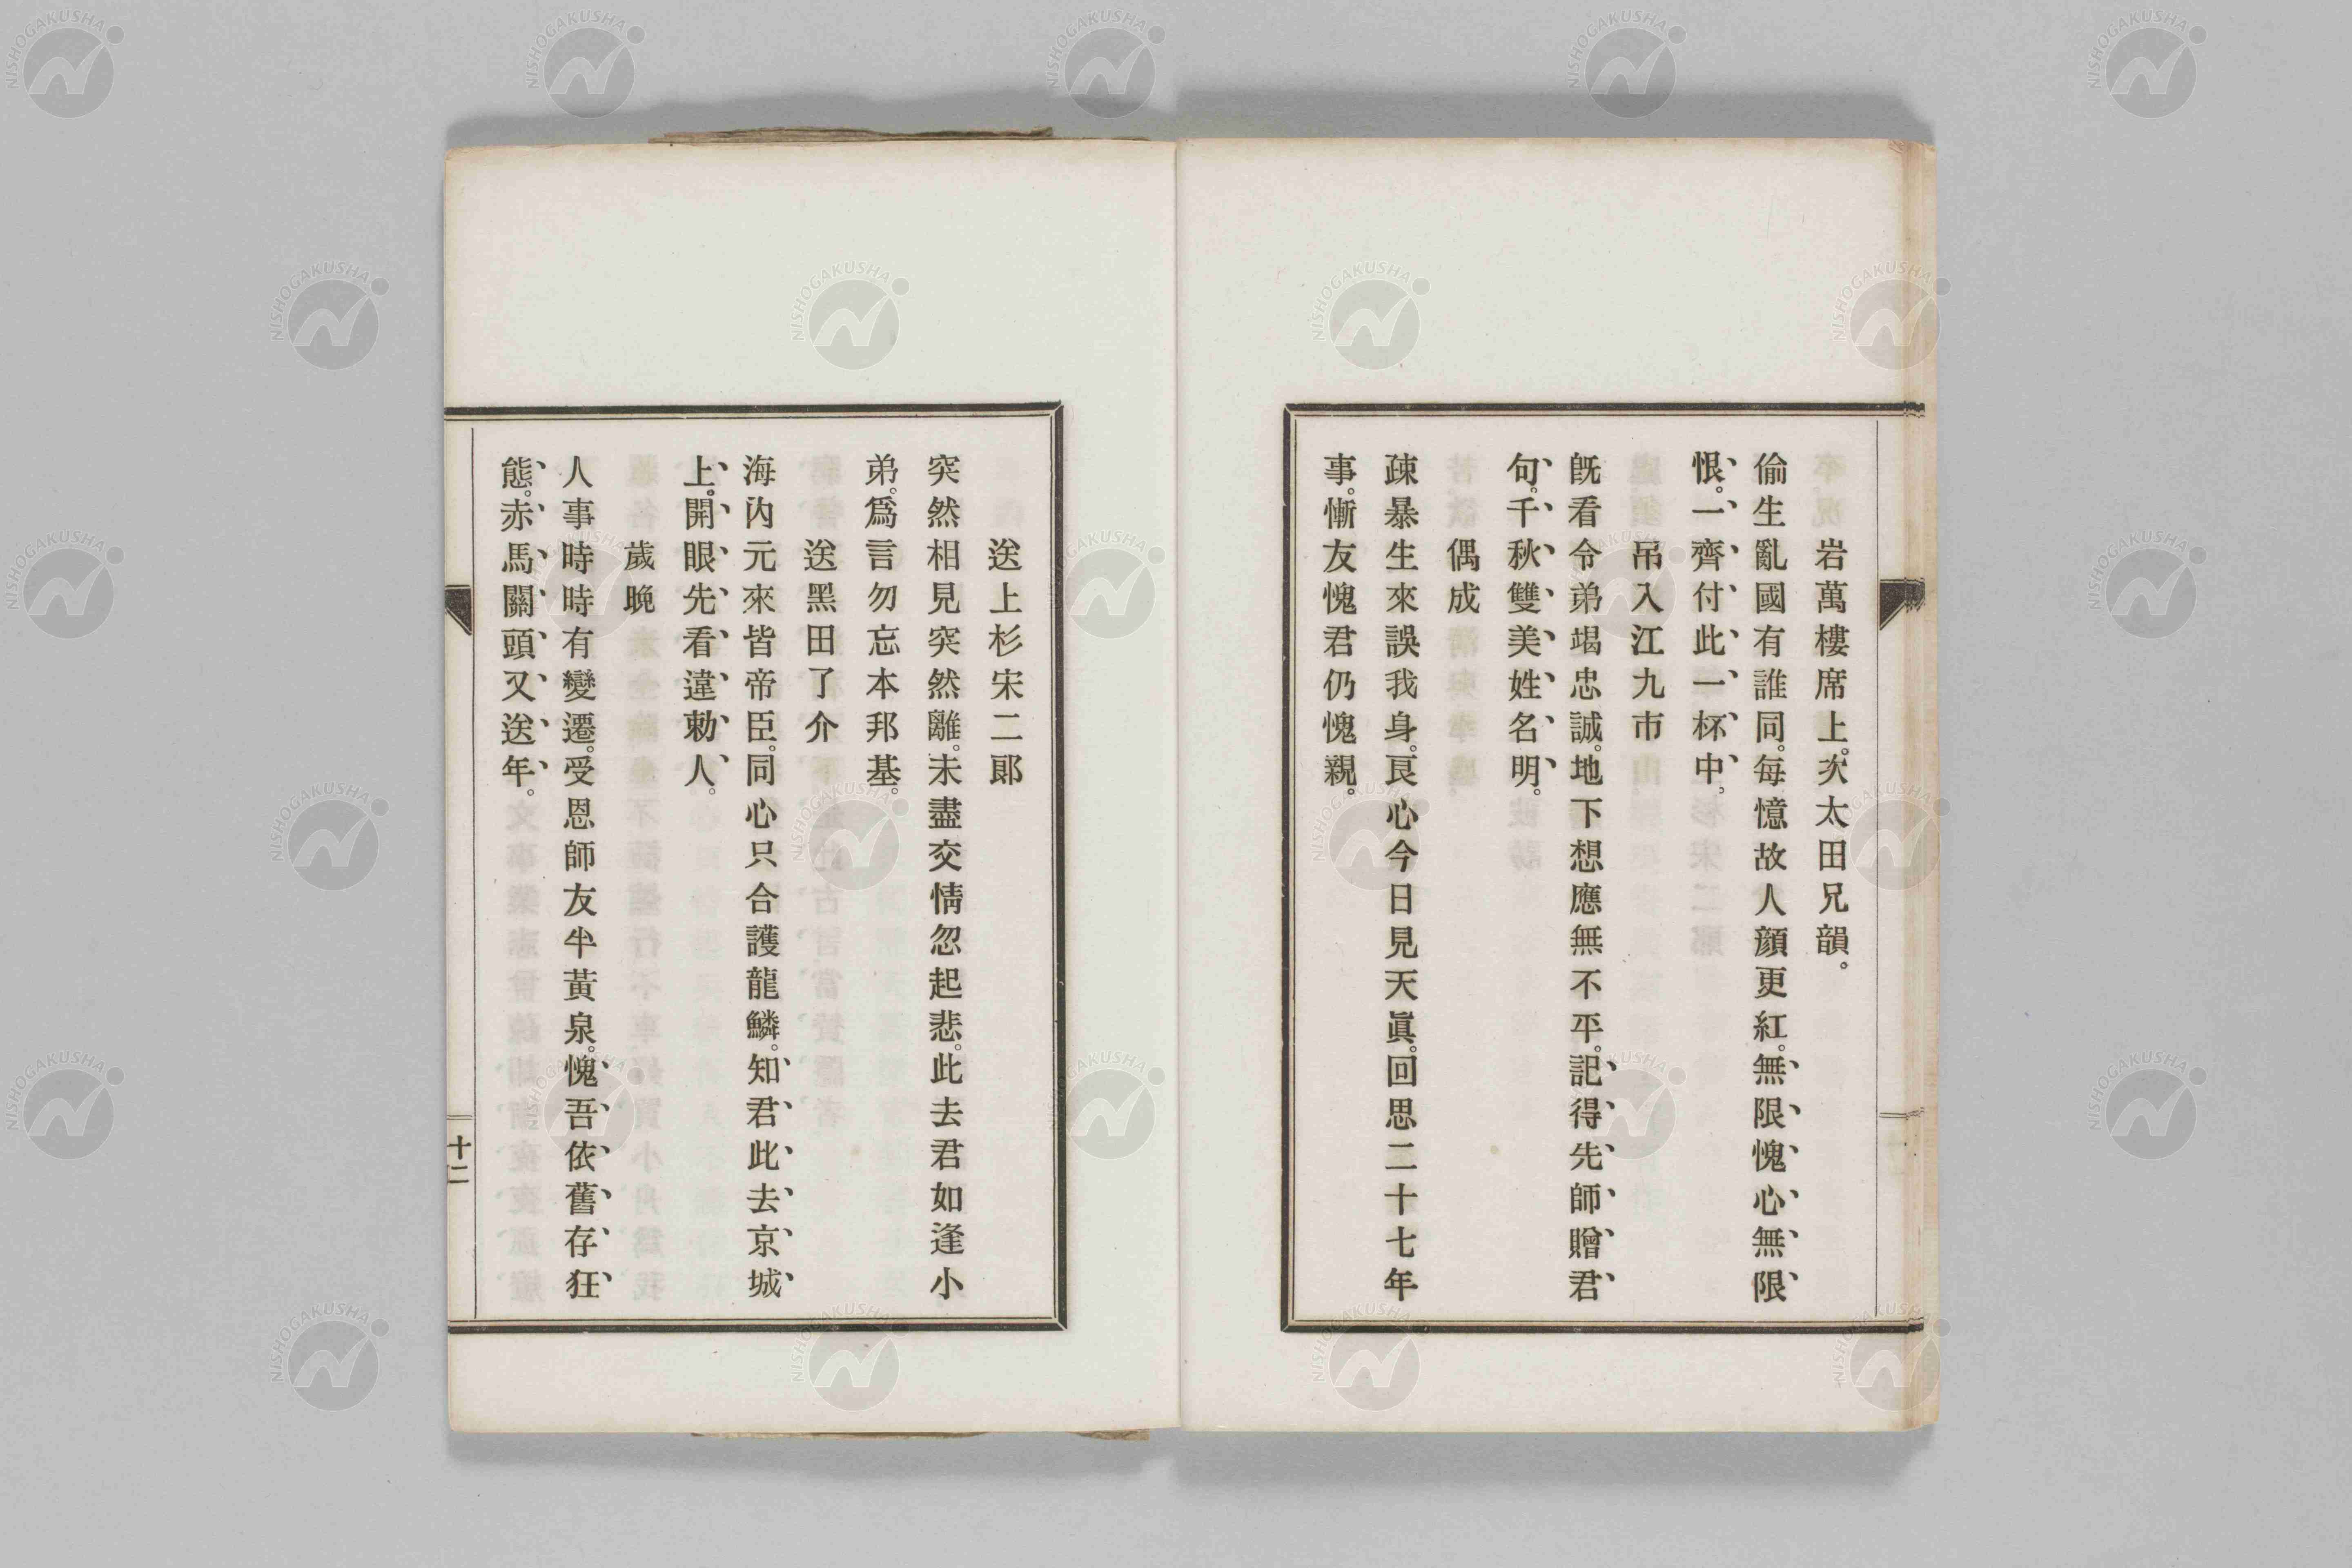 岩萬樓席上。次太田兄韻。
偷生亂國有誰同。每憶故人顏更紅。無限愧心無限
恨。一齊付此一杯中。
吊入江九市
既看令弟竭忠誠。地下想應無不平。記得先師贈君
句。千秋雙美姓名明。
偶成
疎暴生來誤我身。良心今日見天眞。回思二十七年
事。慚友愧君仍愧親。
送上杉宋二郞
突然相見突然離。未盡交情忽起悲。此去君如逢小
弟。爲言勿忘本邦基。
送黑田了介
海內元來皆帝臣。同心只合護龍鱗。知君此去京城
上。開眼先看違勅人。
歲晚
人事時時有變遷。受恩師友半黃泉。愧吾依舊存狂
態。赤馬關頭又送年。
十二
NISHOGAKUSHA